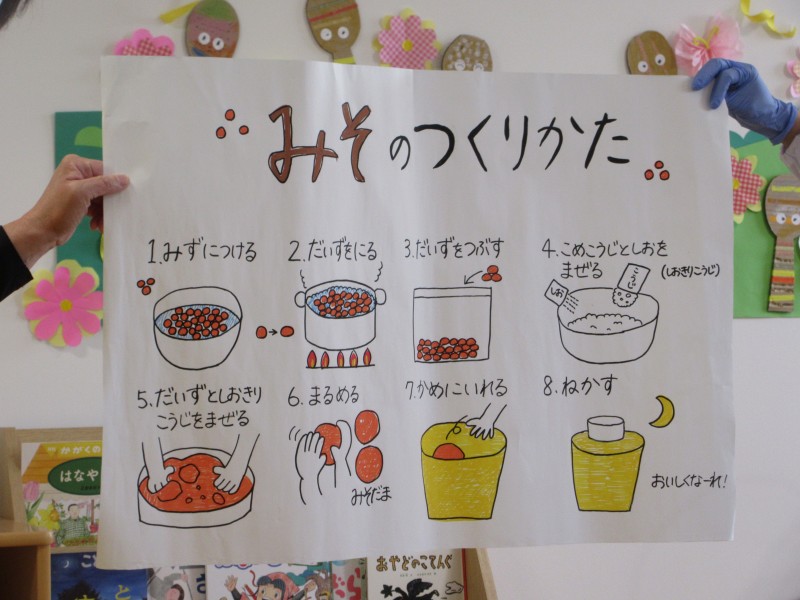 みそのつくりかた
1.みずにつける
2.だいずをにる
3.だいずをつぶす
4.こめこうじとしおを
まぜる
(しおきりこうじ)
しお
こうじ
5.だいずとしおきり
こうじをまぜる
6.まるめる
みそだま
7.かめにいれる
8.ねかす
おいしくなーれ!
かがくの
はなや
おやどのこてんぐ